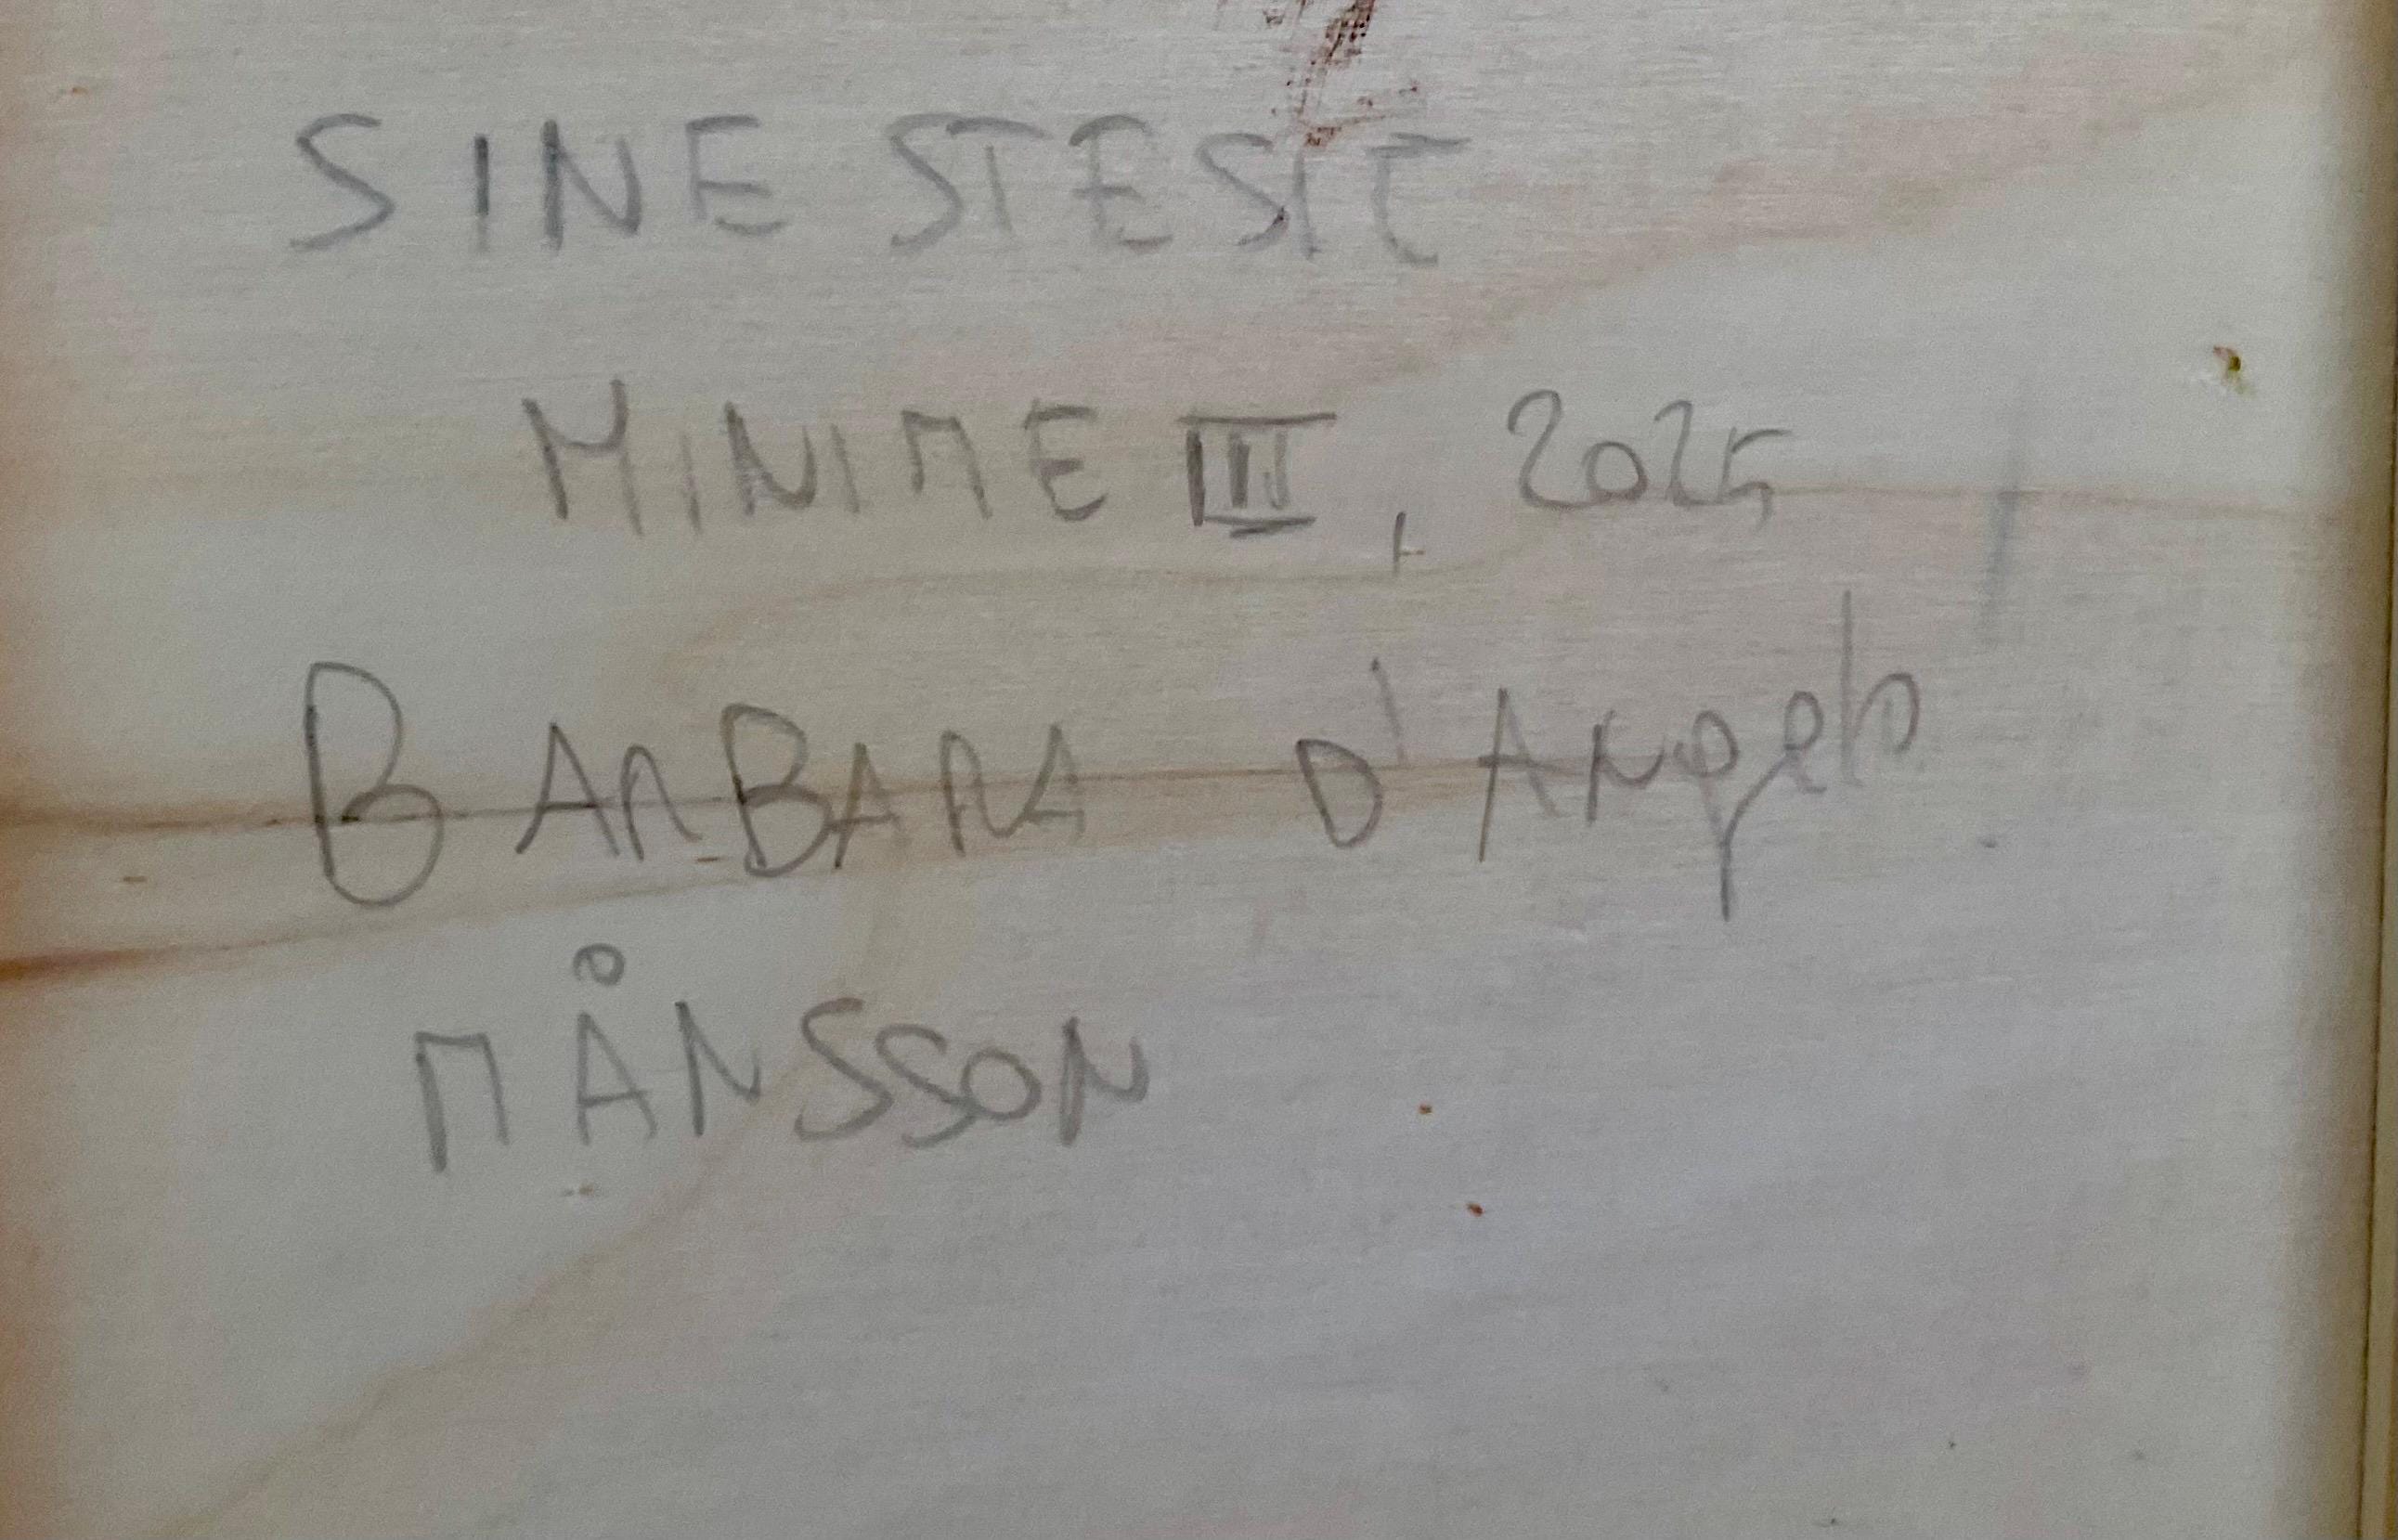 SINESTESIE
MINIME III, 2025
BARBARA D'Angelo
MÅNSSON